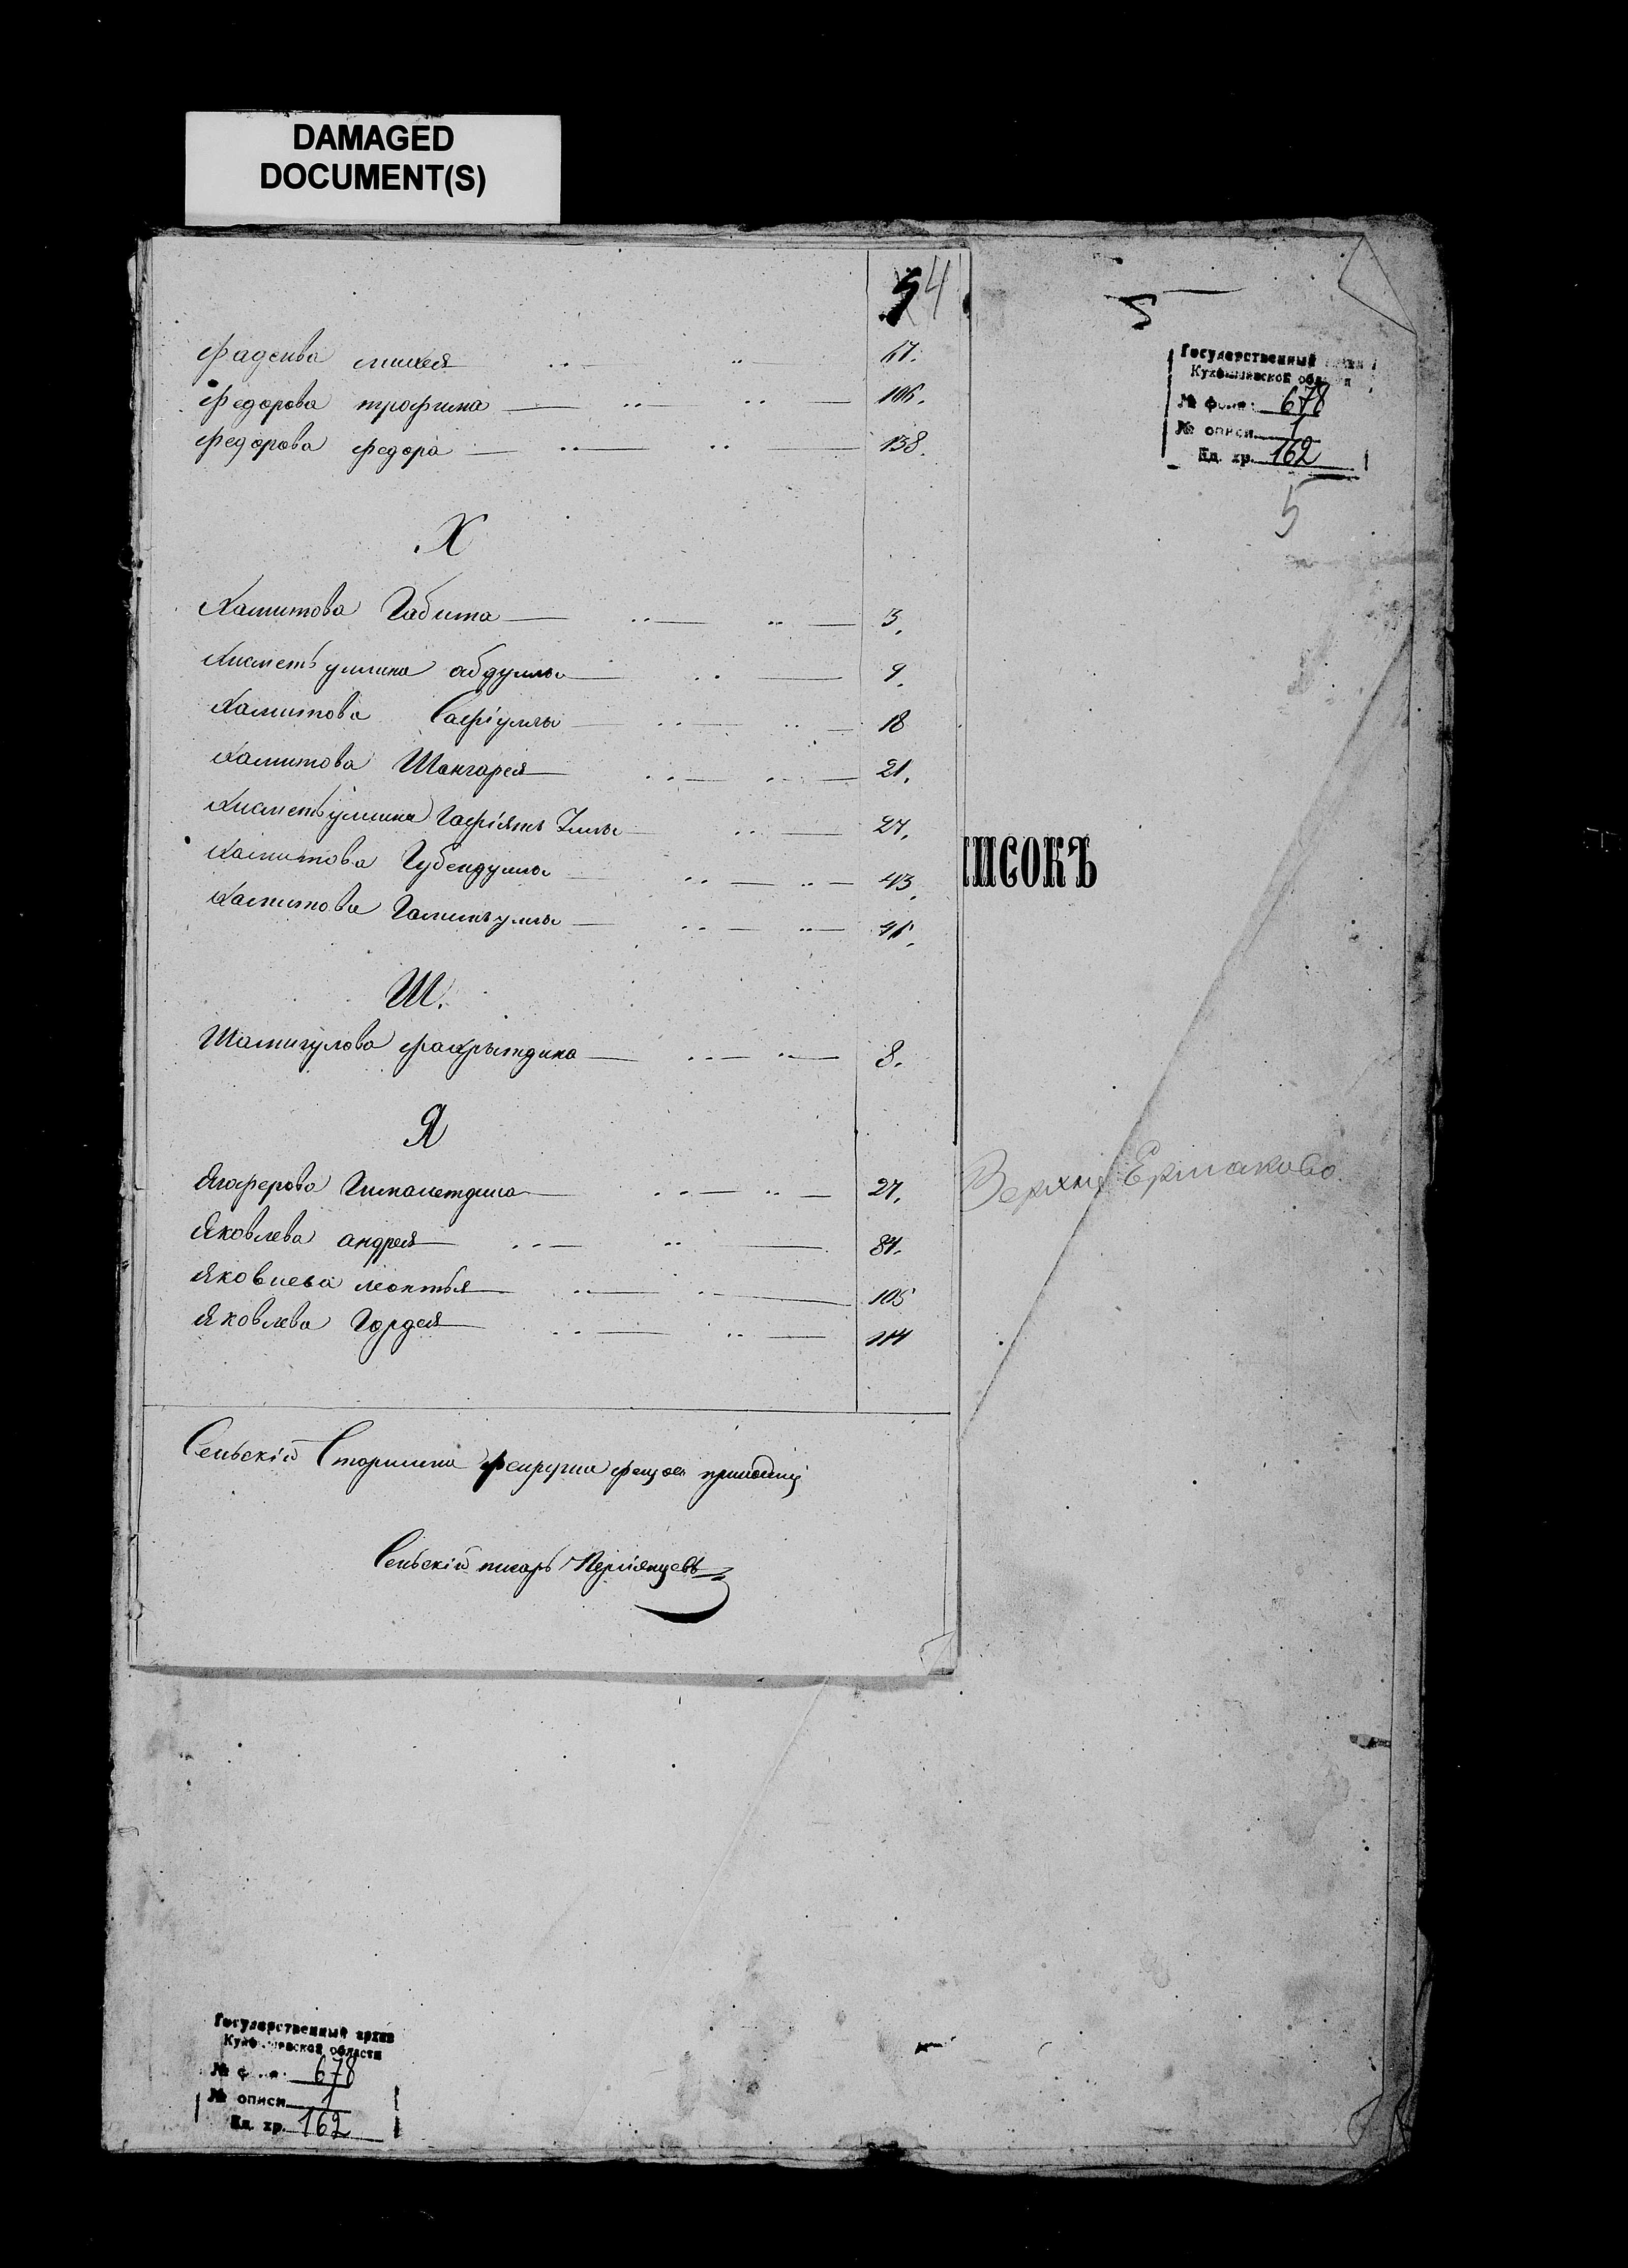 DAMAGED
DOCUMENT(S)
54
Фадеива михея 67.
Федорова трофима 106.
Федорова федора 138.
Х
Хамитова Габита 3.
Хисметьуллина абдуллы 9.
Хамитова Сафіуллы 18
Хамитова Шангарея 21.
Хисметьуллина Гафіятъ 27.
Хамитова Губейдуллы 43.
Хамитова
Ш.
Шамигулова фахрытдина 8.
Я
Ягоферова Гималетдина 27.
Яковлева андрея 87.
Яковлева леонтья 105
Яковлева Гордея 114
Сельскій Старшина
Сельскій писарь
5
Государственный архив
Куйбышевской области
№ фонд 678
№ описи 1
Ед. хр. 162
5
ПИСОКЪ
Верхне Ермаково.
Государственный архив
Куйбышевской области
№ ф 678
№ описи 1
Ед. хр. 162